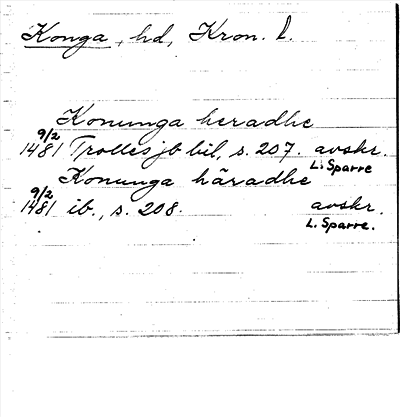 Konga, hd, Kron. l.
Konunga heradhe
9/2
1481 Trolles jb bil, s. 207. avskr.
L. Sparre
Konunga häradhe
9/2
1481 ib., s. 208. avskr.
L. Sparre.